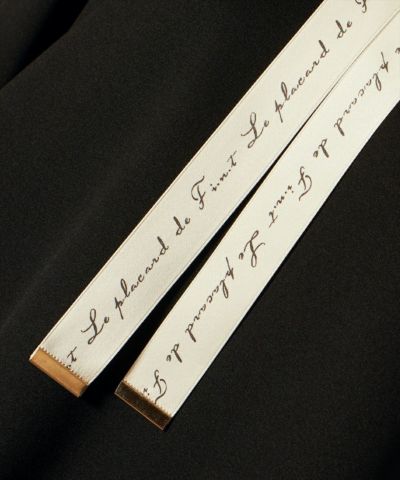 .t Le placard de F i.n.t Le placard de F
placard de F i.n.t Le placard de F i.